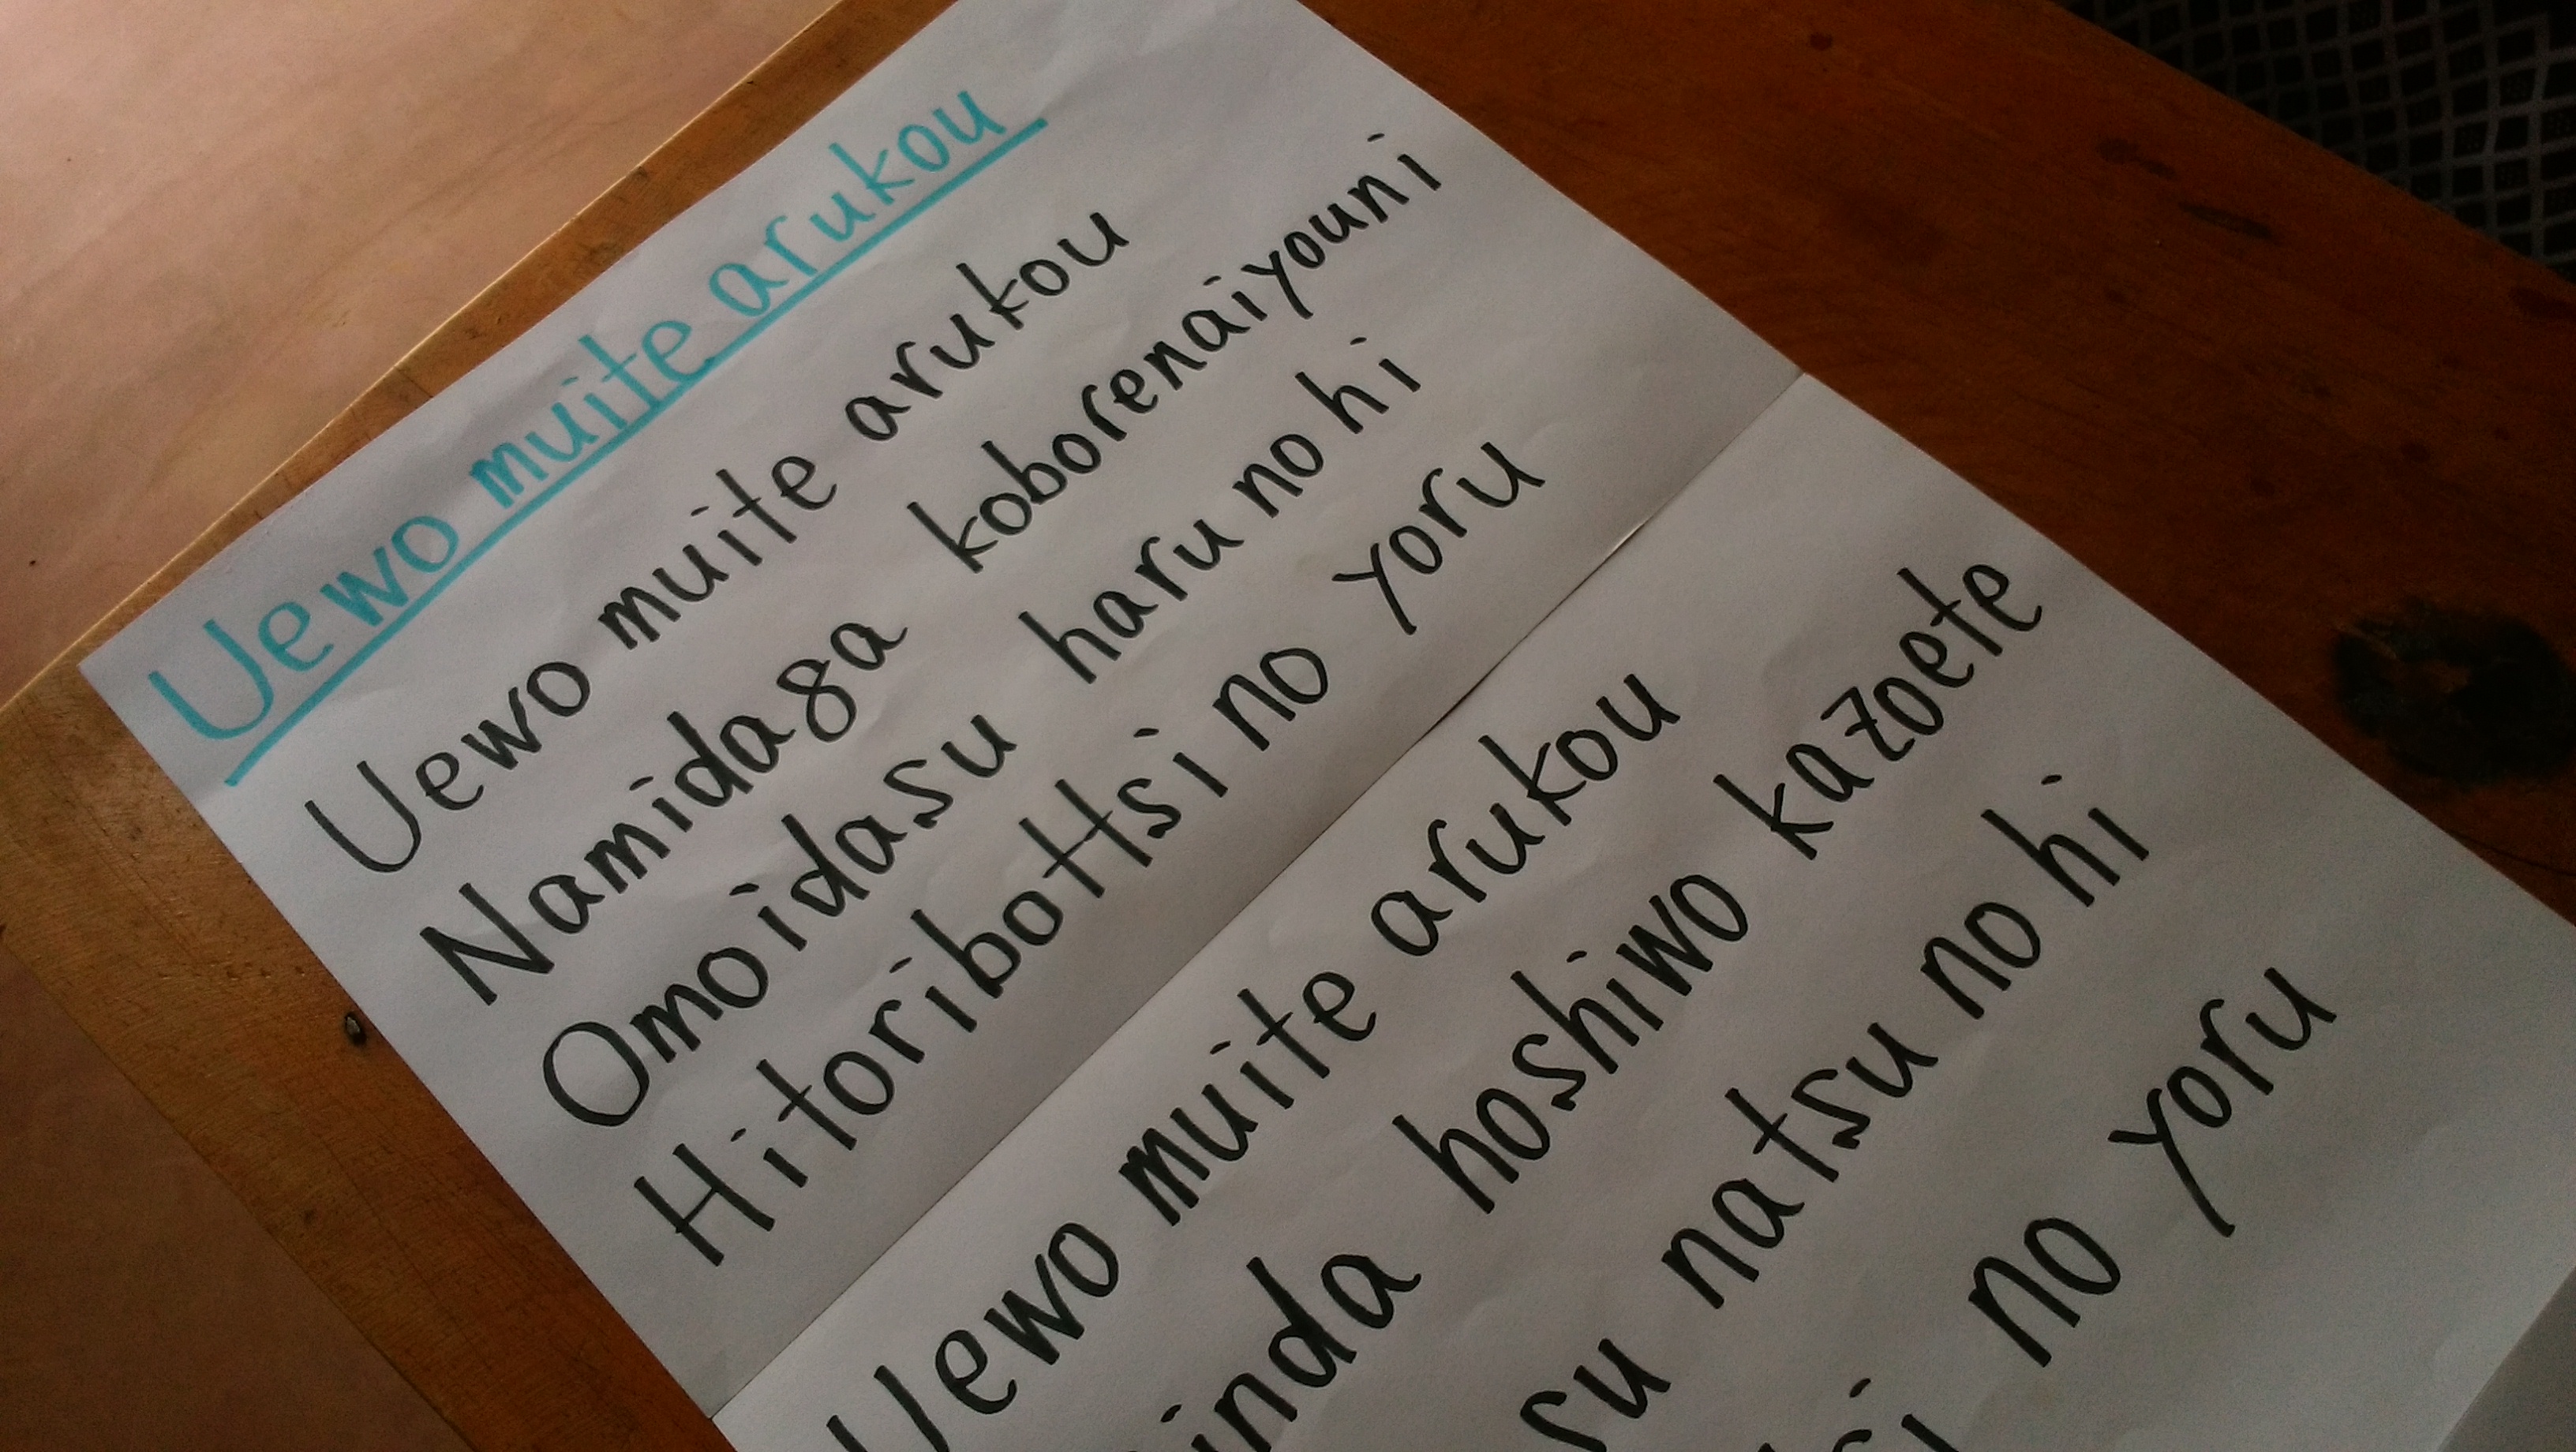 Uewo muite arukou
Uewo muite arukou
Namidaga koborenaiyouni
Omoidasu haru no hi
Hitoribottsi no yoru
Uewo muite arukou
hoshiwo kazoete
natsu no hi
no yoru